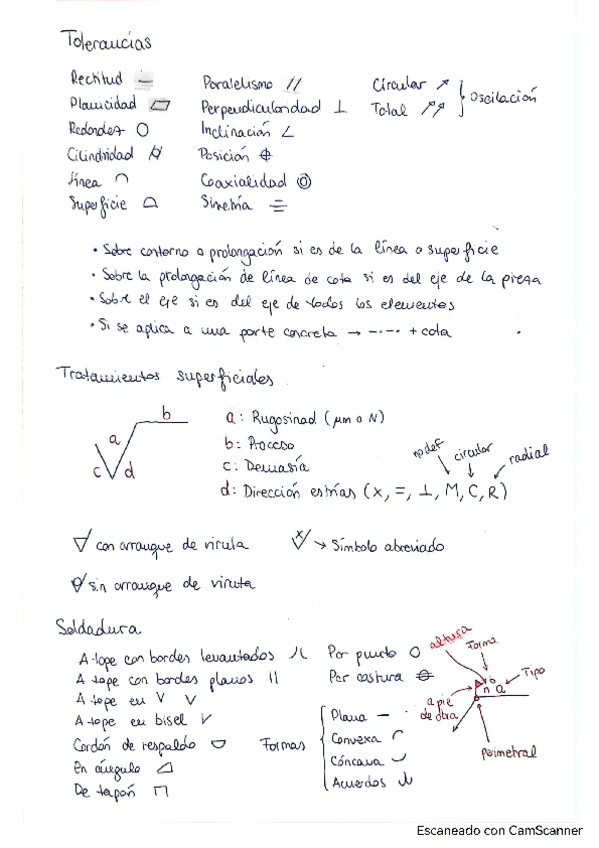 Tolerancias
Rectitud —
Planicidad ▱
Redondez ○
Cilindridad ⌭
Línea ⌒
Superficie ⌓
Paralelismo //
Perpendicularidad ⊥
Inclinación ∠
Posición ⌖
Coaxialidad ◎
Simetría ⌯
Circular ↗
Total ↗↗
} Oscilación
• Sobre contorno o prolongación si es de la línea o superficie
• Sobre la prolongación de línea de cota si es del eje de la pieza
• Sobre el eje si es del eje de todos los elementos
• Si se aplica a una parte concreta → –·–·– + cota
Tratamientos superficiales
b
a
c d
a: Rugosidad (μm o N)
b: Proceso
c: Demasía
d: Dirección estrías (x, =, ⊥, M, C, R)
no def
circular
radial
con arranque de viruta
x → Símbolo abreviado
sin arranque de viruta
Soldadura
A tope con bordes levantados
A tope con bordes planos ||
A tope en V V
A tope en bisel
Cordón de respaldo
En ángulo
De tapón
Por punto ○
Por costura
Formas
Plana —
Convexa ⌒
Cóncava ⌣
Acuerdos
altura
Forma
Tipo
a pie
de obra
n a
perimetral
Escaneado con CamScanner